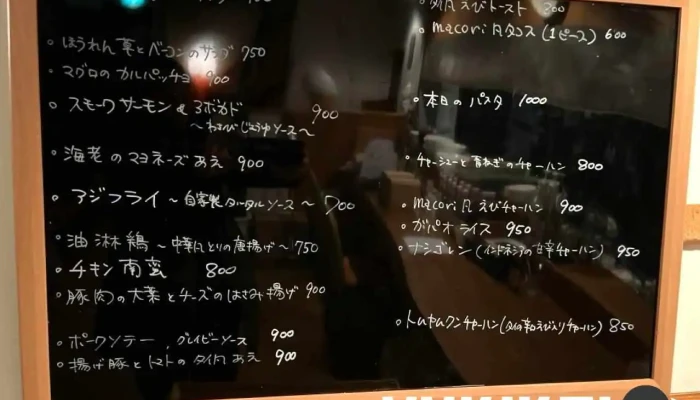 。ほうれん草とベーコンのサラダ 750
。マグロのカルパッチョ 900
。スモークサーモン&アボカド 900
~わさびじょうゆソース~
。海老のマヨネーズあえ 900
。アジフライ ~自家製タルタルソース~ 700
。油淋鶏 ~中華風とりの唐揚げ~ 750
。チキン南蛮 800
。豚肉の大葉とチーズのはさみ揚げ 900
。ポークソテー, グレイビーソース 900
。揚げ豚とトマトのタイ風あえ 900
。タイ風えびトースト 800
。macori風タコス (1ピース) 600
。本日のパスタ 1000
。チャーシューと青ねぎのチャーハン 800
。macori風えびチャーハン 900
。ガパオライス 950
。ナシゴレン (インドネシアの甘辛チャーハン) 950
。トムヤムクンチャーハン (タイの辛いえび入りチャーハン) 850